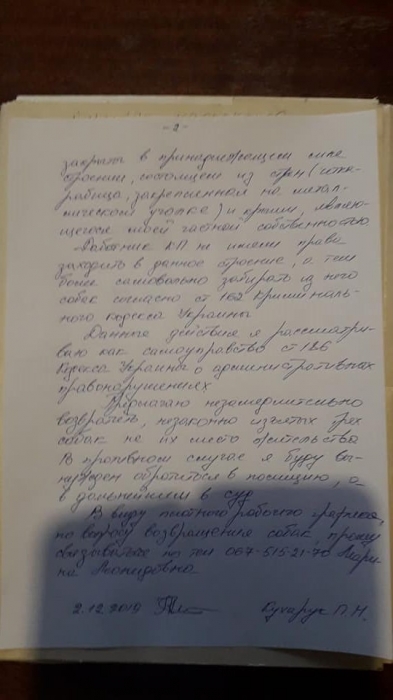 - 2 -
закрыты в принадлежащем мне
строении, состоящем из стен (сетка-
рабица, закрепленная на метал-
лическом уголке) и крыши, являю-
щегося моей частной собственностью.
Работник КП не имели права
заходить в данное строение, а тем
более самовольно забирать из него
собак согласно ст 162 Криминаль-
ного кодекса Украины
Данные действия я рассматри-
ваю как самоуправство ст 186
Кодекса Украины о административных
правонарушениях
Предлагаю незамедлительно
возвратить, незаконно изъятых трех
собак на их место жительства
В противном случае я буду вы-
нужден обратиться в полицию, а
в дальнейшем в суд
В виду плотного рабочего графика,
по вопросу возвращения собак, прошу
связываться по тел 067-515-21-70 Мари-
на Леонидовна
2.12.2019 П.Н.